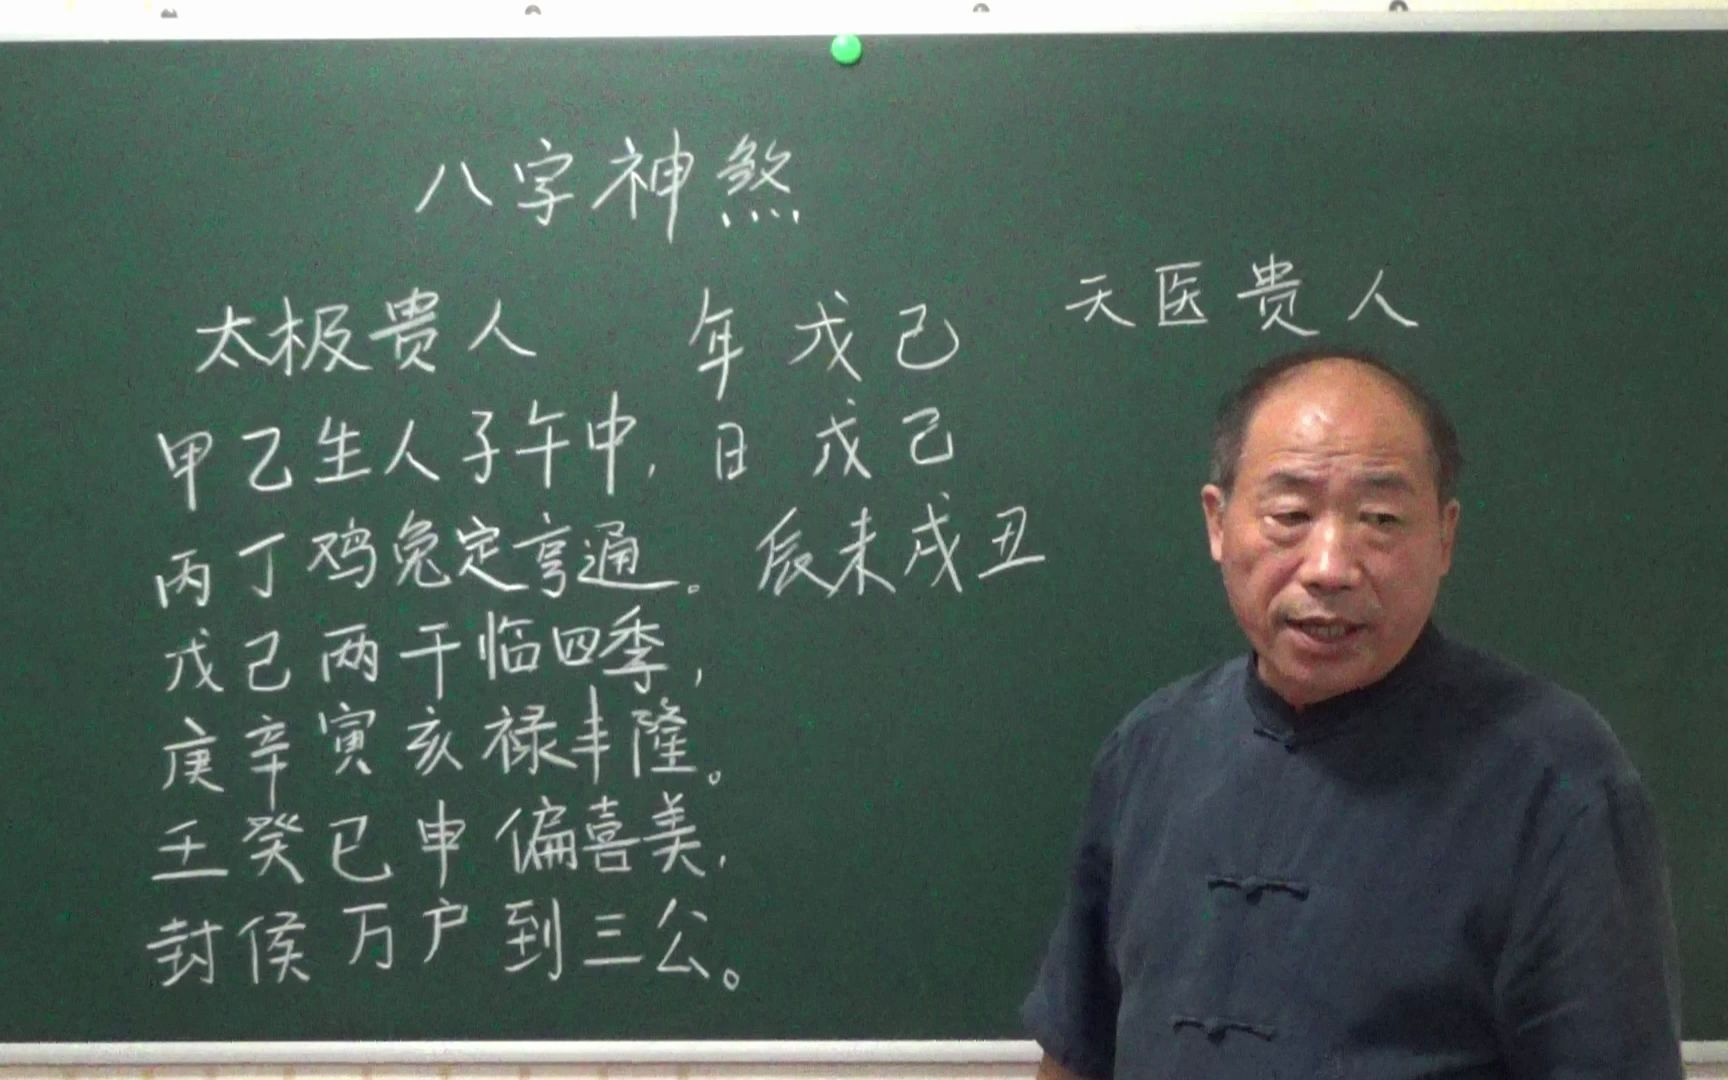 八字神煞
太极贵人 年戊己 天医贵人
甲乙生人子午中, 日戊己
丙丁鸡兔定亨通。辰未戌丑
戊己两干临四季,
庚辛寅亥禄丰隆。
壬癸巳申偏喜美,
封侯万户到三公。